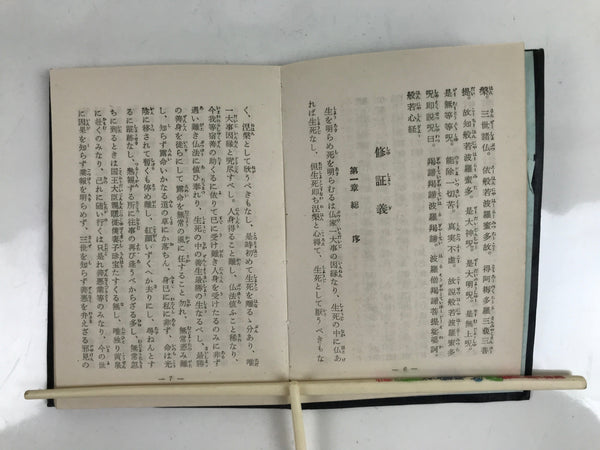 槃。三世諸仏。依般若波羅蜜多故。得阿耨多羅三藐三菩
提。故知般若波羅蜜多。是大神呪。是大明呪。是無上呪。
是無等等呪。能除一切苦。真実不虚。故説般若波羅蜜多
呪即説呪曰。羯諦羯諦。波羅羯諦。波羅僧羯諦菩提薩婆訶。
般若心経
修証義
第一章 総序
生を明らめ死を明らむるは仏家一大事の因縁なり、生死の中に仏あ
れば生死なし、但生死即ち涅槃と心得て、生死として厭うべきもな
― 6 ―
く、涅槃として欣うべきもなし、是時初めて生死を離るゝ分あり、唯
一大事因縁と究尽すべし。人身得ること難し、仏法値ふこと稀なり、
今我等宿善の助くるに依りて已に受け難き人身を受けたるのみに非ず
遇い難き仏法に値い奉れり、生死の中の善生最勝の生なるべし、最勝
の善身を徒らにして露命を無常の風に任すること勿れ。無常憑み難
し、知らず露命いかなる道の草にか落ちん、身已に私に非ず、命は光
陰に移されて暫くも停め難し、紅顔いずくへか去りにし、尋ねんとす
るに蹤跡なし、熟観ずる所に往事の再び逢うべからざる多し、無常忽
ちに到るときは国王大臣親暱従僕妻子珍宝たすくる無し、唯独り黄泉
に往くのみなり、己れに随い行くは只是れ善悪業等のみなり。今の世
に因果を知らず業報を明らめず、三世を知らず善悪を弁えざる邪見の
― 7 ―